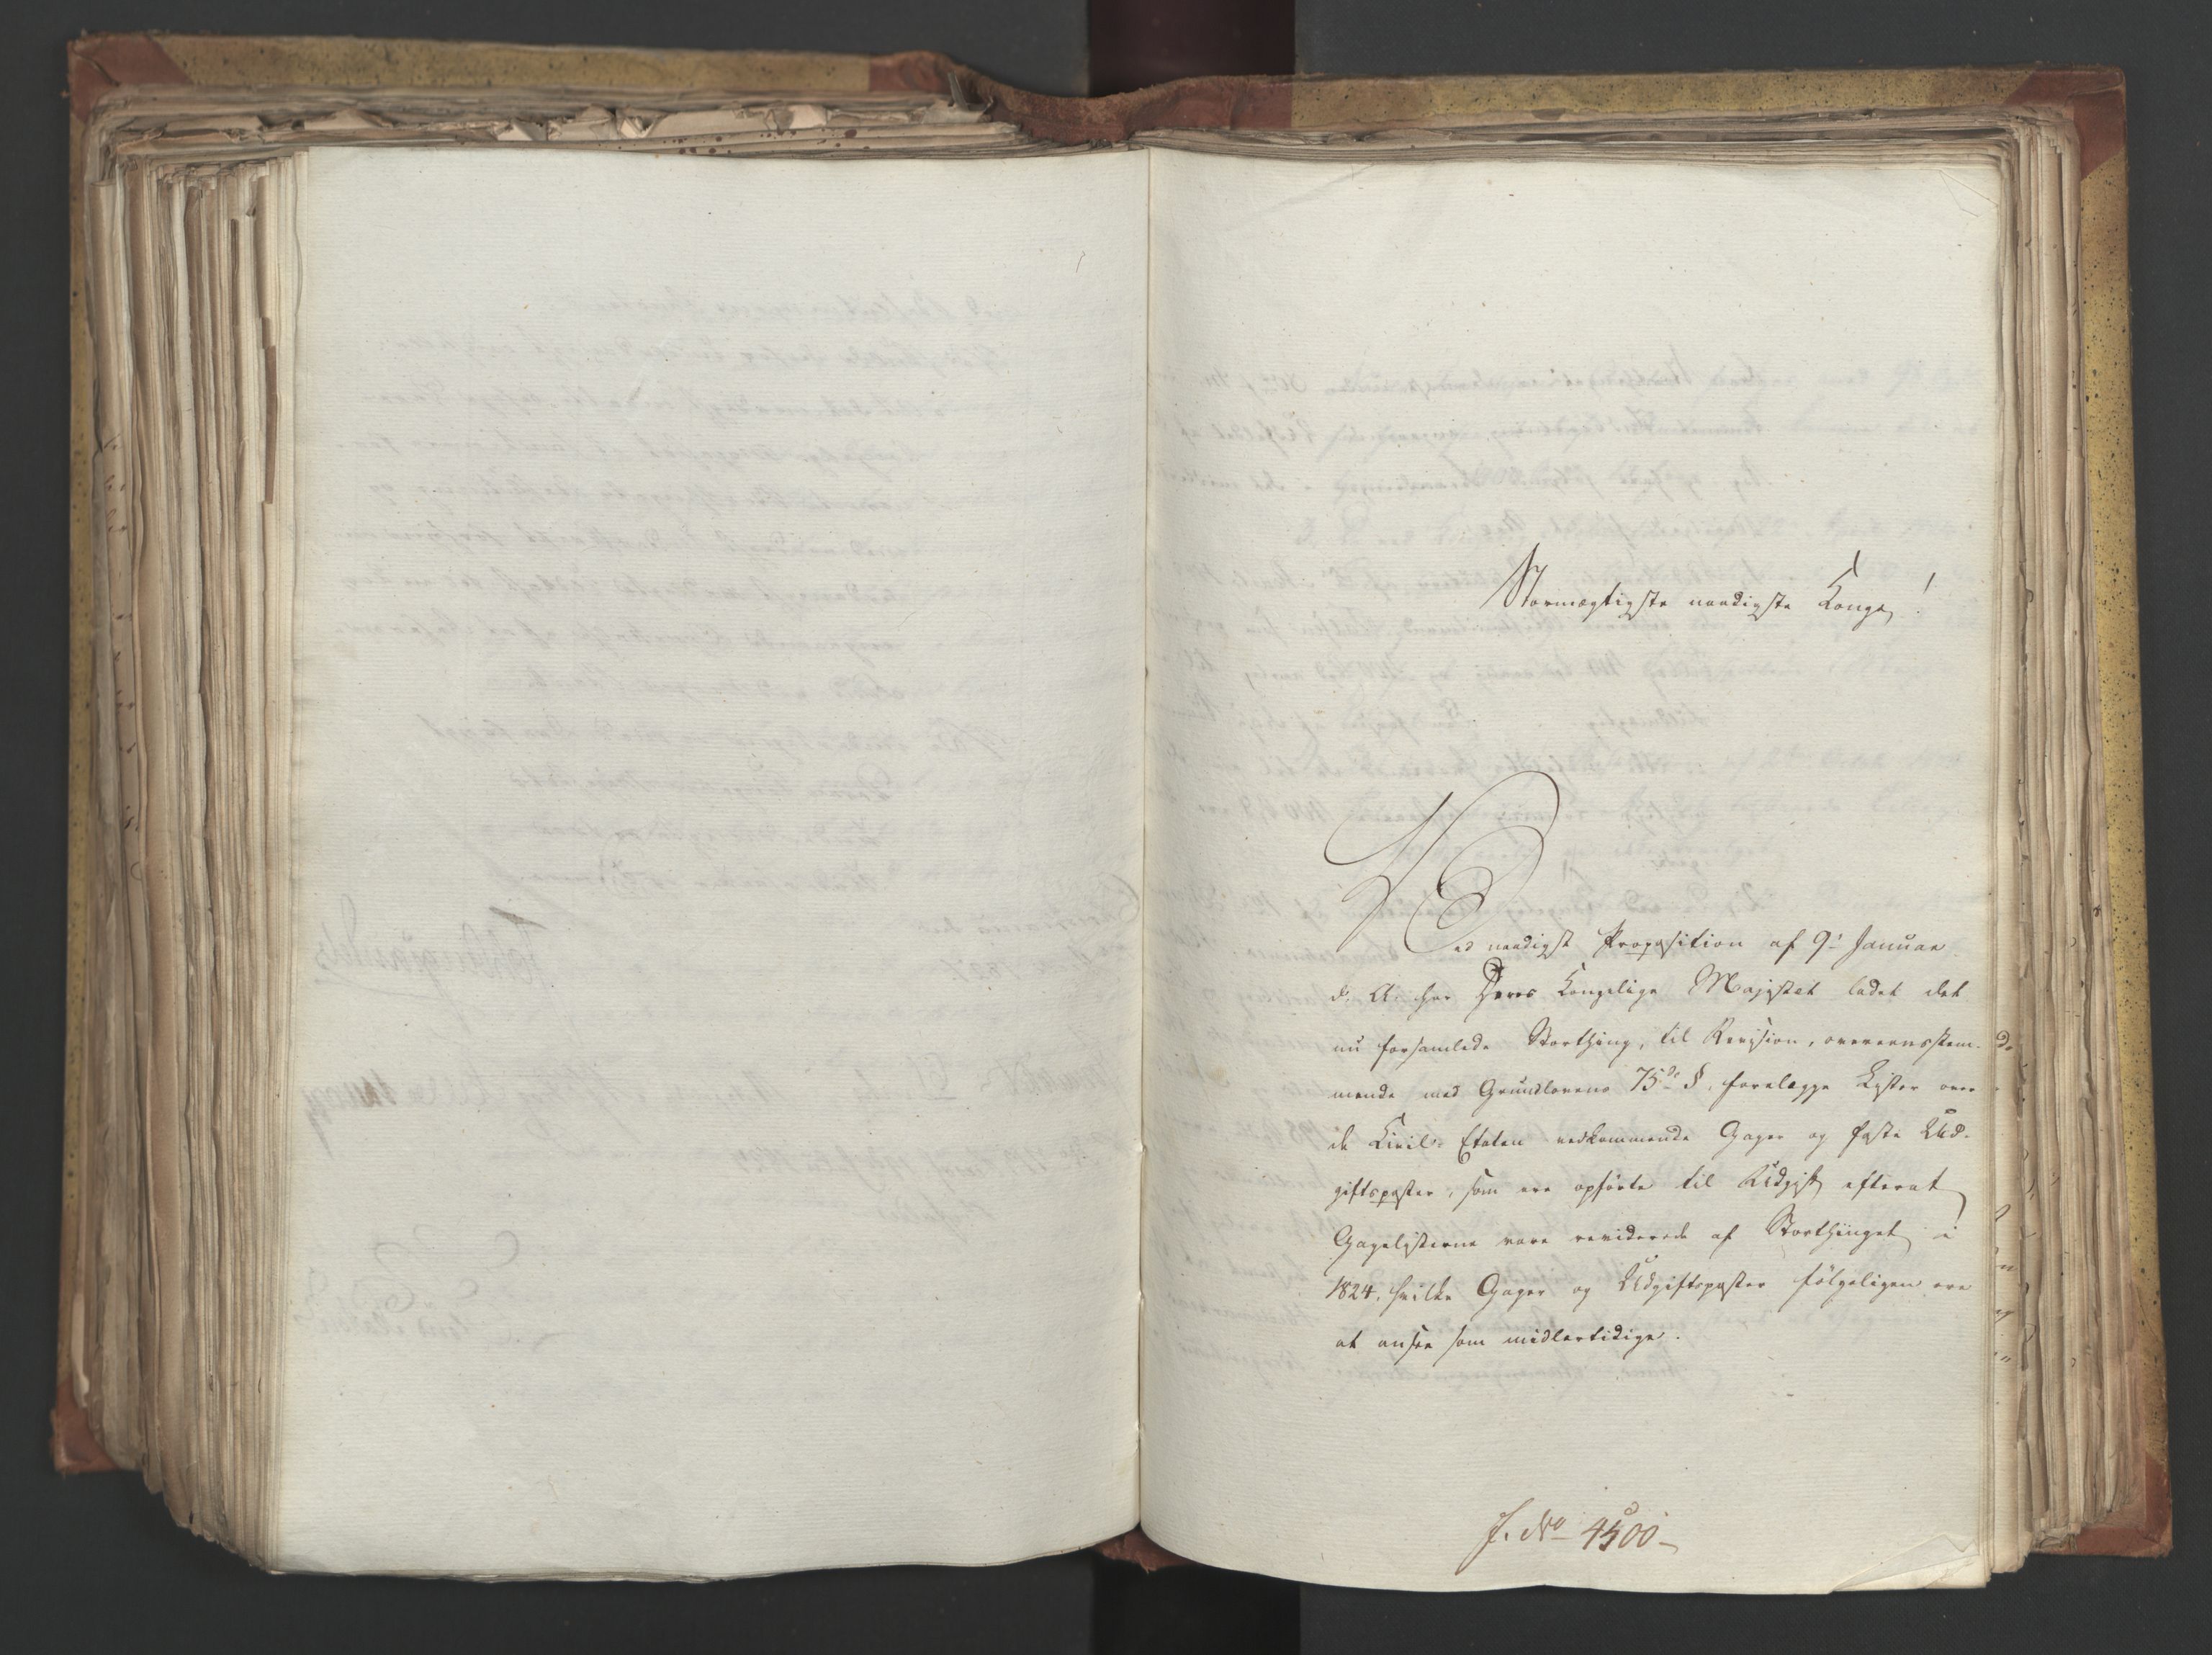 Stormægtigste naadigste Konge!
Ved naadigst Proposition af 9de Januar
d. A. har Deres Kongelige Majestæt ladet det
nu forsamlede Storthing, til Revision, overeensstem-
mende med Grundlovens 75de §, forelægge Lister over
de Civil-Etaten vedkommende Gager og faste Ud-
giftsposter, som ere opførte til Udgift efterat
Gagelisterne vare reviderede af Storthinget i
1824, hvilke Gager og Udgiftsposter følgeligen ere
at ansee som midlertidige.
J. No 4500